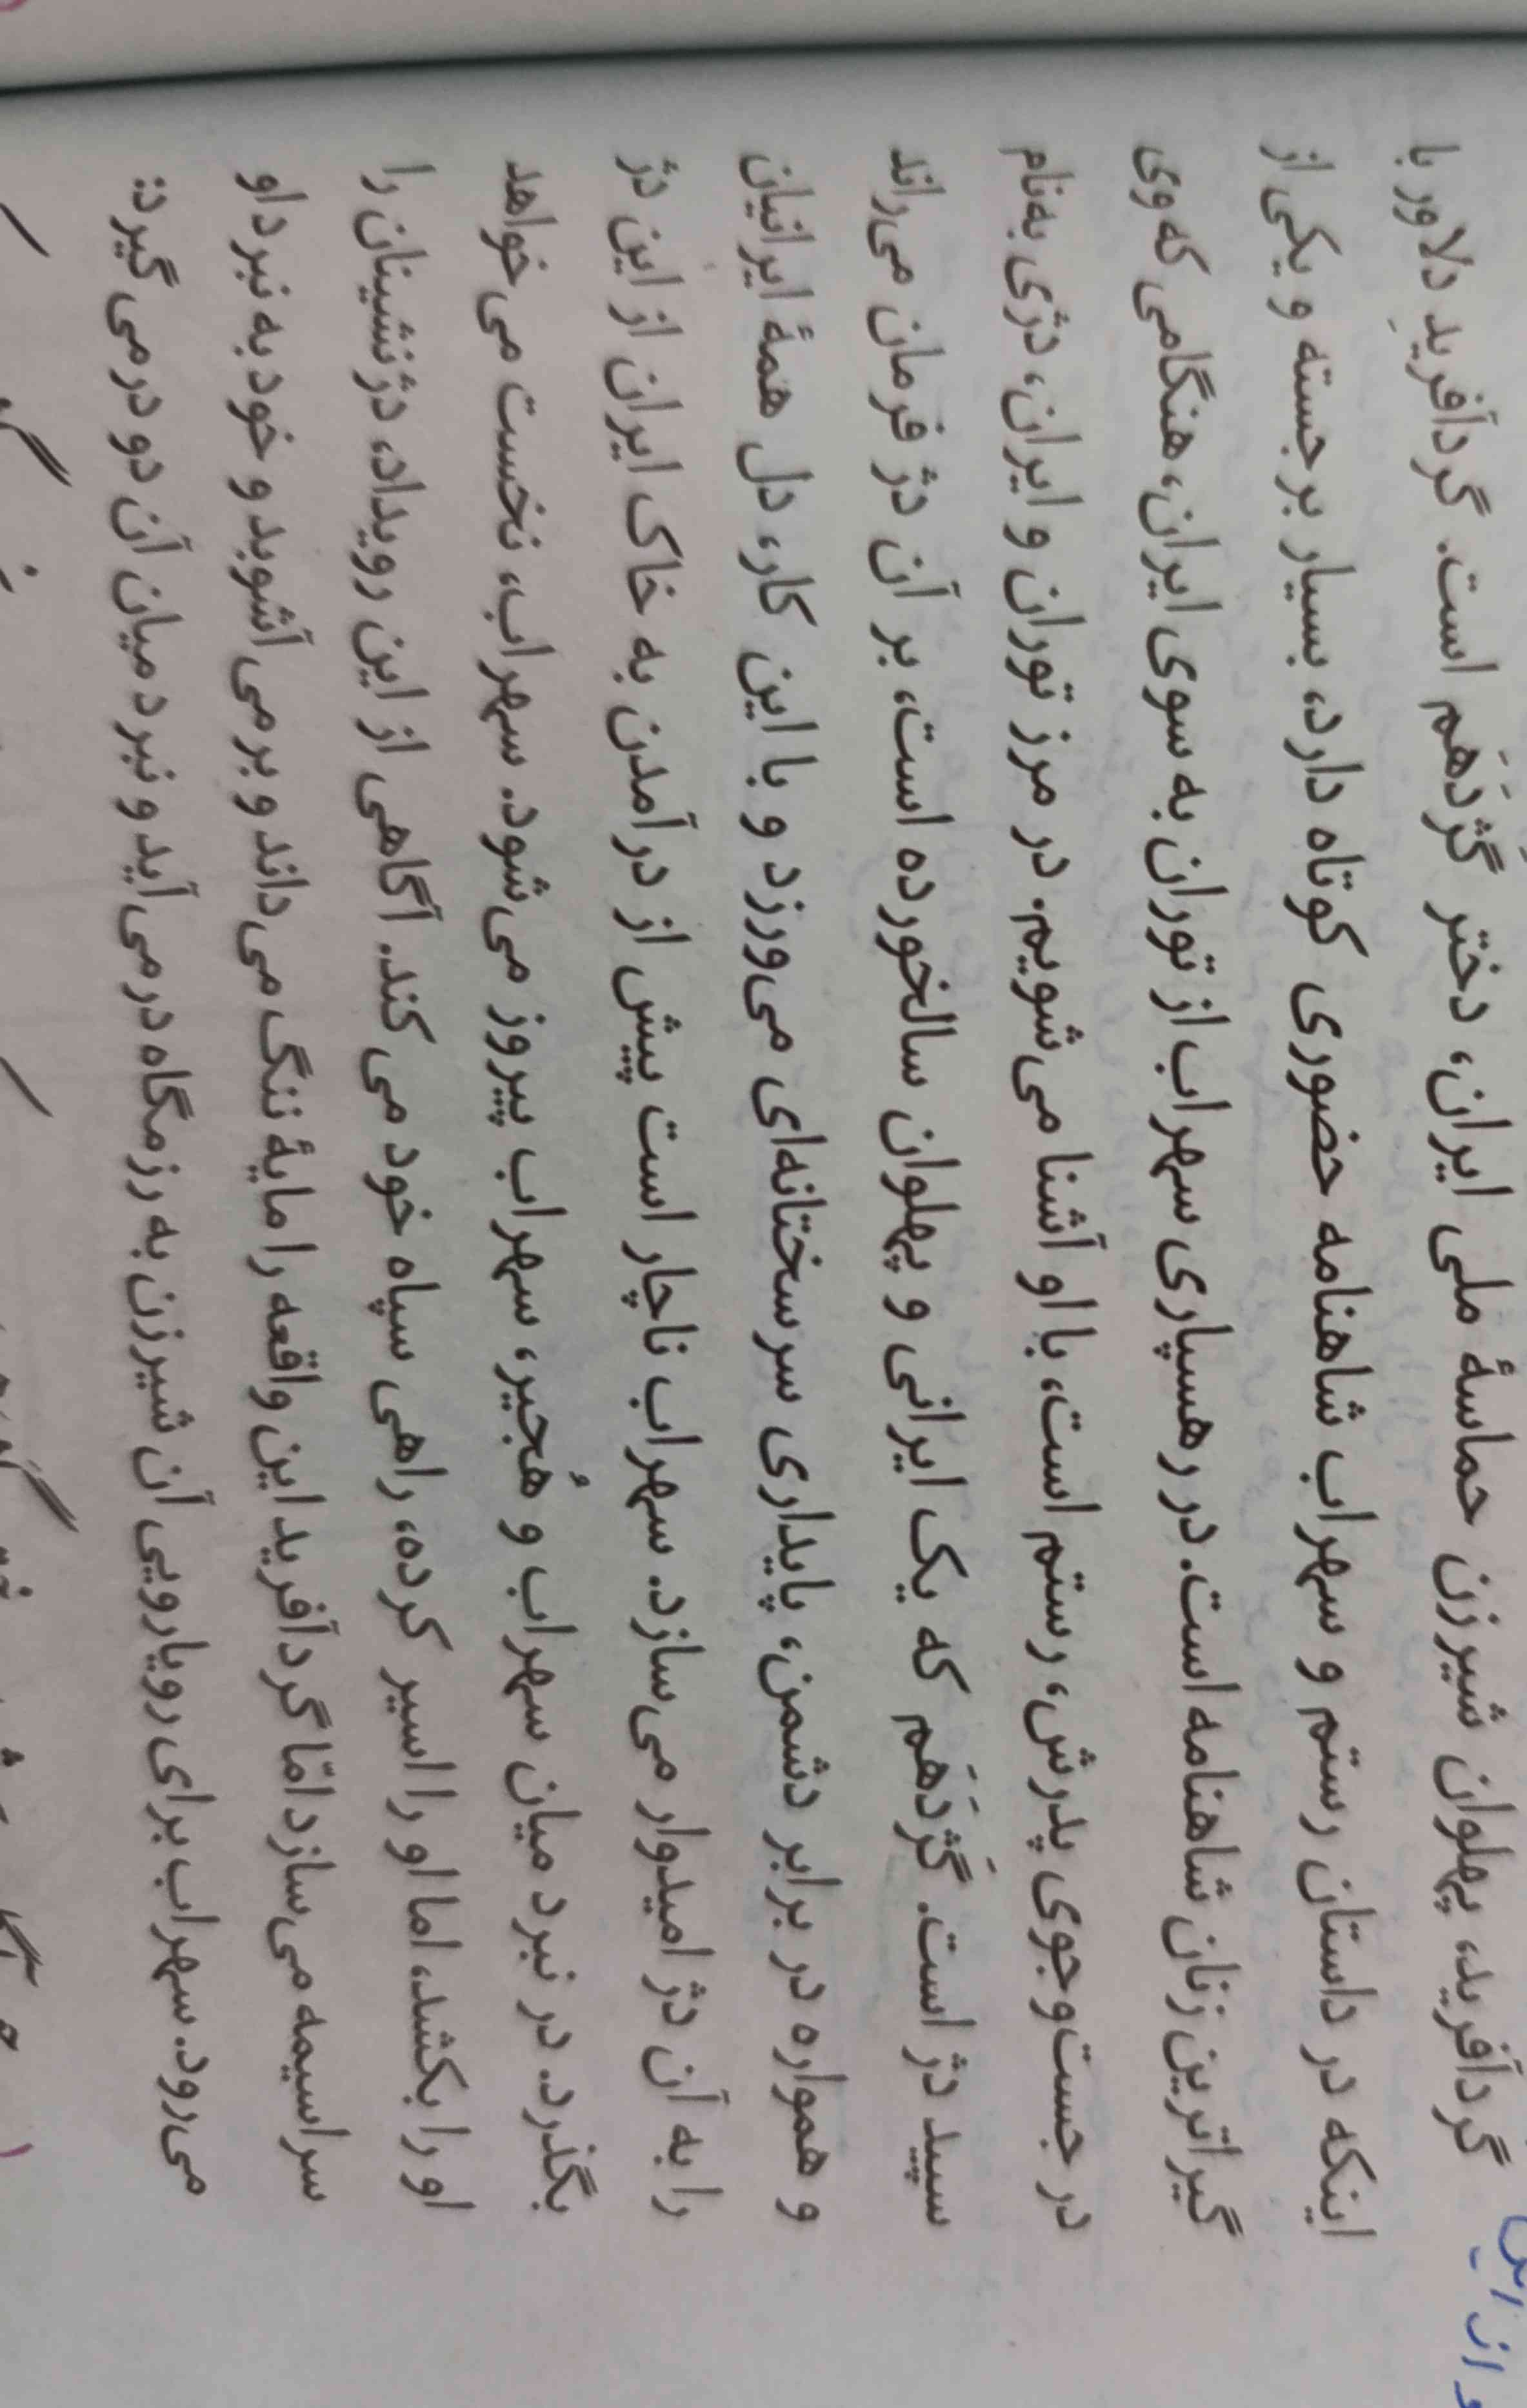 گردآفرید، پهلوان شیرزن حماسهٔ ملی ایران، دختر گَژدَهَم است. گردآفریدِ دلاور با
اینکه در داستان رستم و سهراب شاهنامه حضوری کوتاه دارد، بسیار برجسته و یکی از
گیراترین زنان شاهنامه است. در رهسپاری سهراب از توران به سوی ایران، هنگامی که وی
در جست‌وجوی پدرش، رستم است، با او آشنا می‌شویم. در مرز توران و ایران، دژی به‌نام
سپید دژ است. گَژدَهَم که یک ایرانی و پهلوان سالخورده است، بر آن دژ فرمان می‌راند
و همواره در برابر دشمن، پایداری سرسختانه‌ای می‌ورزد و با این کار، دل همهٔ ایرانیان
را به آن دژ امیدوار می‌سازد. سهراب ناچار است پیش از درآمدن به خاک ایران از این دژ
بگذرد. در نبرد میان سهراب و هُجیر، سهراب پیروز می‌شود. سهراب، نخست می‌خواهد
او را بکشد، اما او را اسیر کرده، راهی سپاه خود می‌کند. آگاهی از این رویداد، دژنشینان را
سراسیمه می‌سازد امّا گردآفرید این واقعه را مایهٔ ننگ می‌داند و برمی‌آشوبد و خود به نبرد او
می‌رود. سهراب برای رویارویی آن شیرزن به رزمگاه درمی‌آید و نبرد میان آن دو درمی‌گیرد: